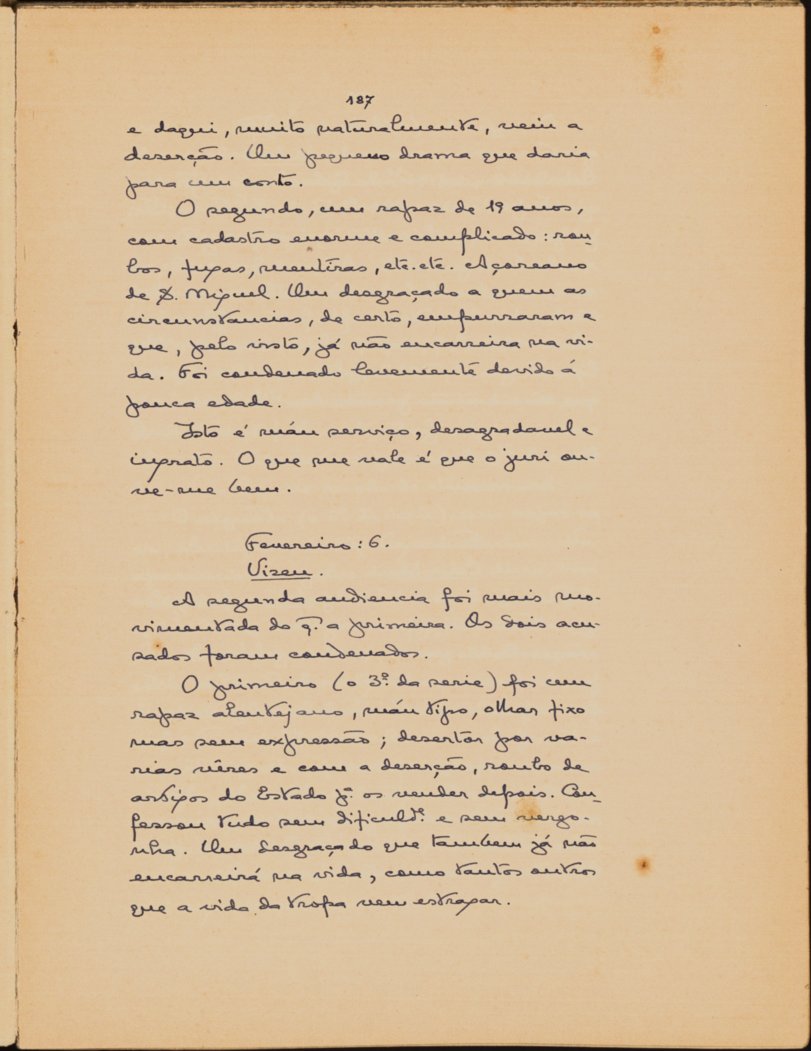 187
e daqui, muito naturalmente, veiu a
deserção. Um pequeno drama que daria
para um conto.
O segundo, um rapaz de 19 anos,
com cadastro enorme e complicado: rou-
bos, fugas, mentiras, etc. etc. Açoreano
de S. Miguel. Um desgraçado a quem as
circunstancias, de certo, empurraram e
que, pelo visto, já não encarreira na vi-
da. Foi condenado levemente devido á
pouca edade.
Isto é máu serviço, desagradavel e
ingrato. O que me vale é que o juri ou-
ve-me bem.
Fevereiro: 6.
Vizeu.
A segunda audiencia foi mais mo-
vimentada do q.e a primeira. Os dois acu-
sados foram condenados.
O primeiro (o 3º da serie) foi um
rapaz alentejano, máu tipo, olhar fixo
mas sem expressão; desertor por va-
rias vêses e com a deserção, roubo de
artigos do Estado p.a os vender depois. Con-
fessou tudo sem dificuld.e e sem vergo-
nha. Um desgraçado que tambem já não
encarreirá na vida, como tantos outros
que a vida da tropa vem estragar.